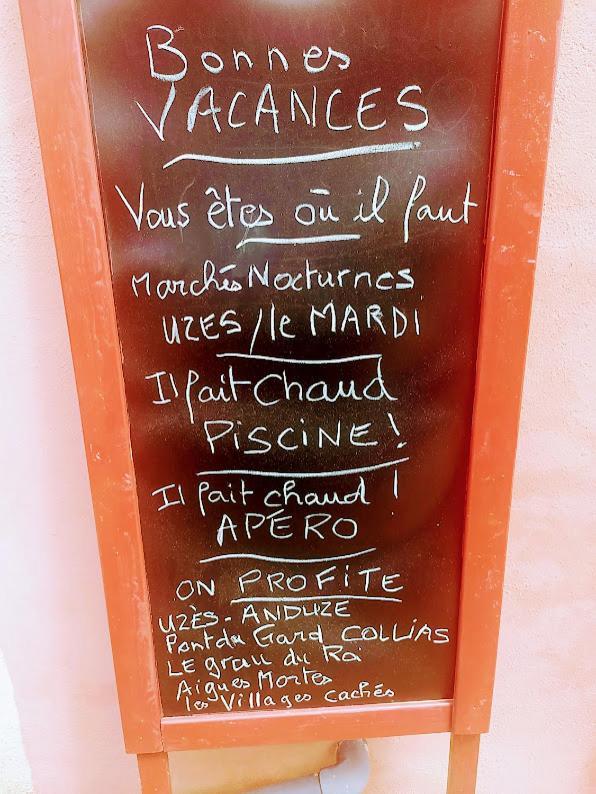 Bonnes
VACANCES
Vous êtes où il faut
Marchés Nocturnes
UZES / le MARDI
Il fait Chaud
PISCINE !
Il fait chaud !
APÉRO
ON PROFITE
UZÈS - ANDUZE
Pont du Gard COLLIAS
LE grau du Roi
Aigues Mortes
les Villages cachés